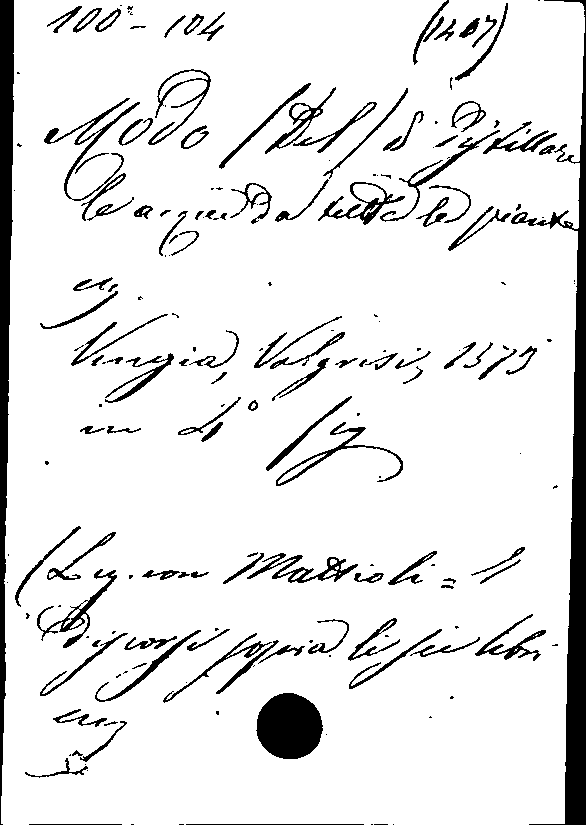 100 - 104 (1407)
Modo (Del) di Distillare
le acque da tutte le piante
ecc.
Vengia, Valgrisi, 1575
in 4° fig
(Leg. con Mattioli = I
Discorsi sopra li sei libri
ecc